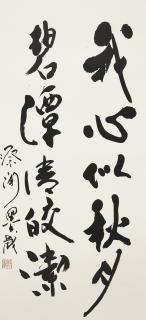 我心似秋月
碧潭清皎潔